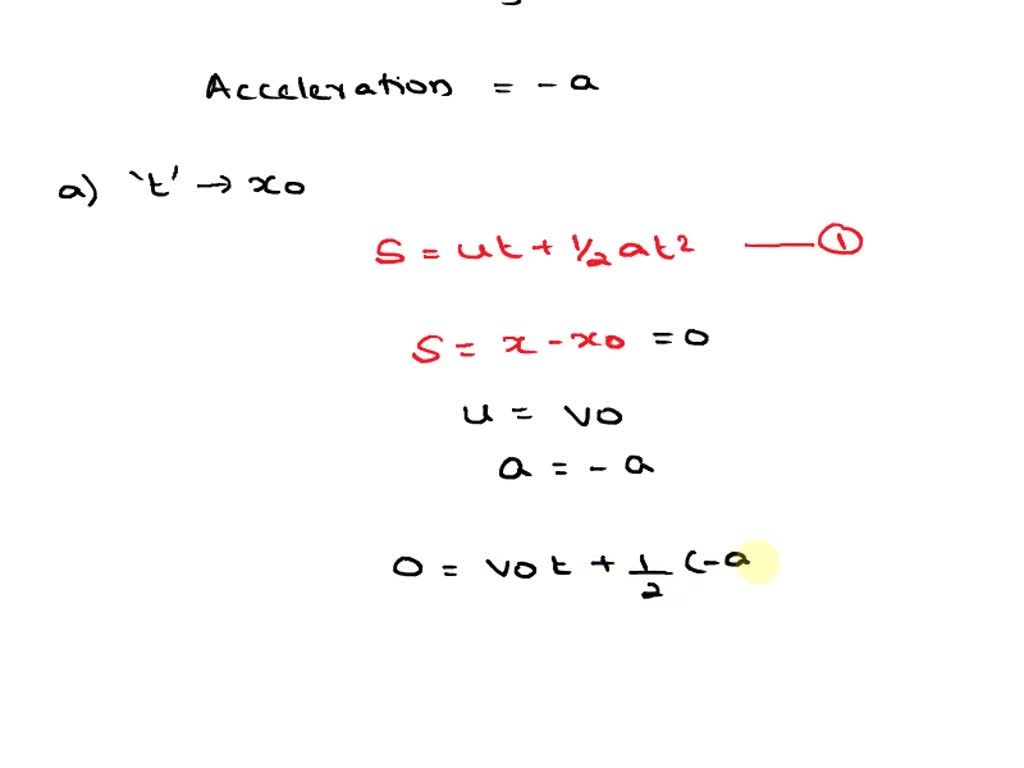 Acceleration = - a
a) 't' → x0
S = ut + 1/2 at² —— ①
S = x - x0 = 0
u = v0
a = - a
0 = v0 t + 1/2 (-a